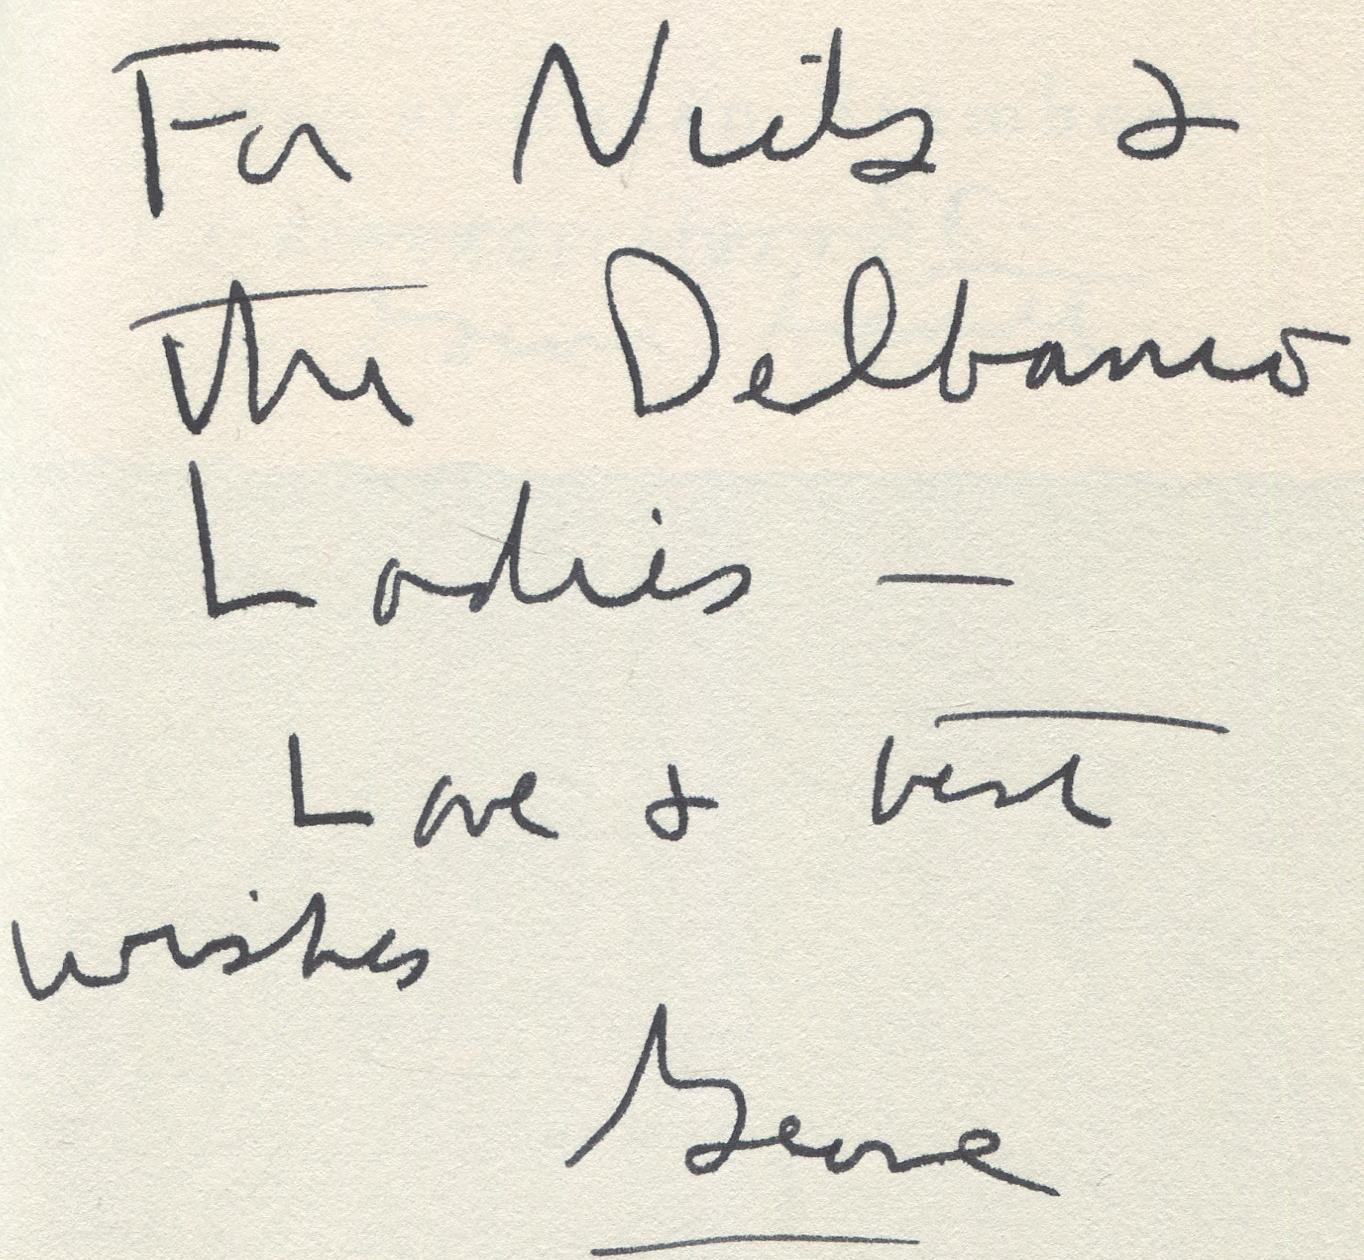 For Nicky &
The Delbanco
Ladies —
Love & best
wishes
George